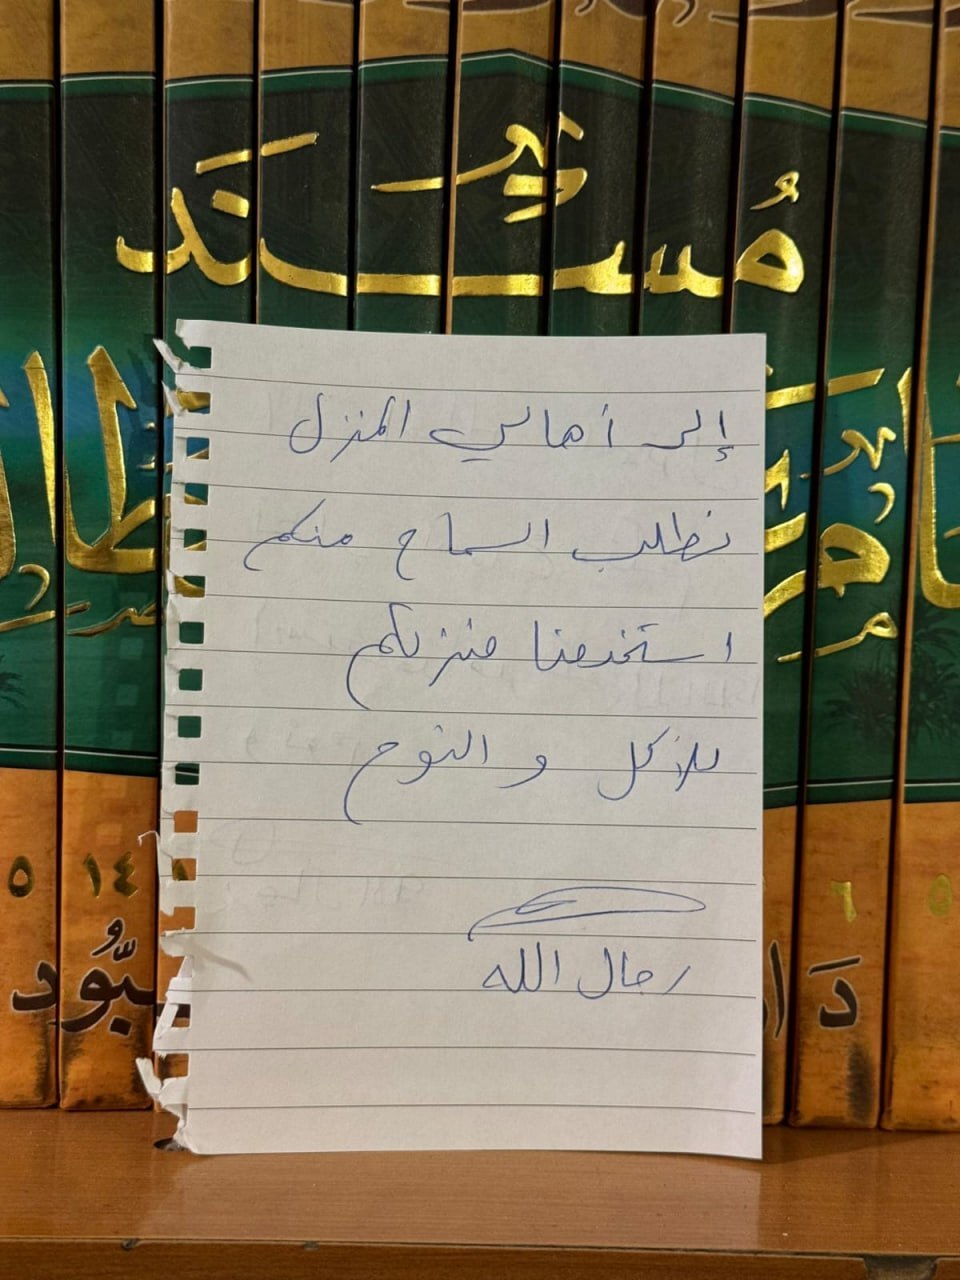 مُسْنَد
١٤
٦
٥
إلى أهالي المنزل
نطلب السماح منكم
استخدمنا منزلكم
للأكل و النوم
رجال الله